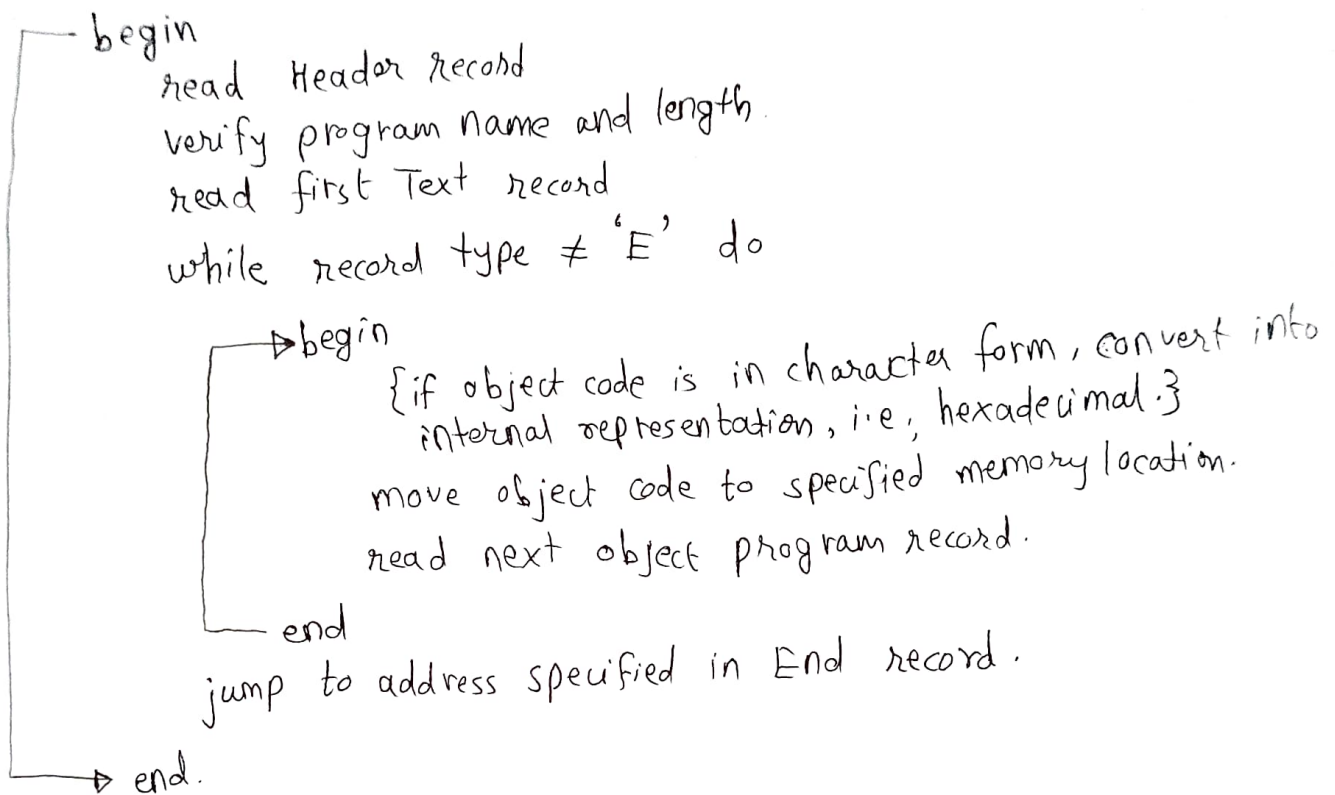 begin
read Header record
verify program name and length.
read first Text record
while record type ≠ 'E' do
begin
{if object code is in character form, convert into
internal representation, i.e, hexadecimal.}
move object code to specified memory location.
read next object program record.
end
jump to address specified in End record.
end.